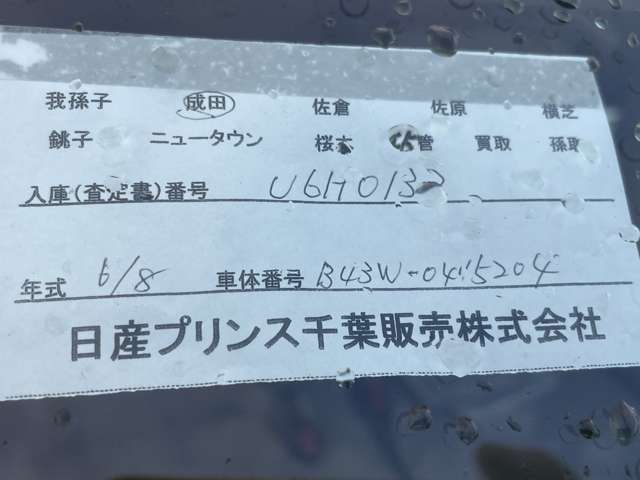 我孫子 成田 佐倉 佐原 横芝
銚子 ニュータウン 買取
入庫(査定書)番号
年式 6/8 車体番号 B43W-0415204
日産プリンス千葉販売株式会社